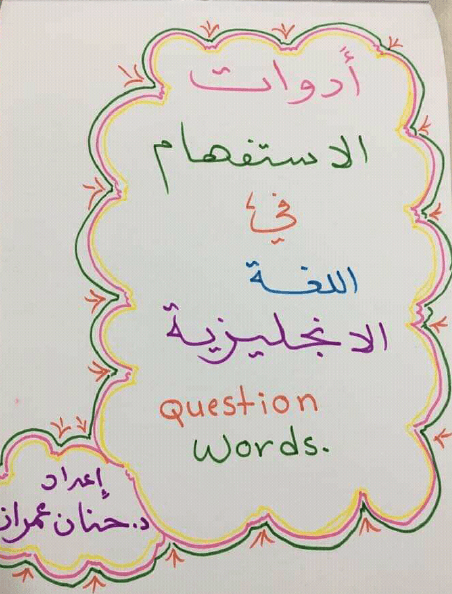 أدوات
الاستفهام
في
اللغة
الانجليزية
Question
Words.
إعداد
د. حنان عمران